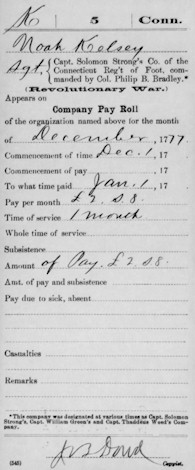 K | 5 | Conn.
Noah Kelsey
Sgt, { Capt. Solomon Strong's Co. of the
Connecticut Reg't of Foot, com-
manded by Col. Philip B. Bradley.*
(Revolutionary War.)
Appears on
Company Pay Roll
of the organization named above for the month
of December, 1777.
Commencement of time Dec. 1, 17
Commencement of pay , 17
To what time paid Jan. 1, 17
Pay per month £2 S.8.
Time of service 1 month
Whole time of service
Subsistence
Amount of Pay. £2. S8.
Amt. of pay and subsistence
Pay due to sick, absent
Casualties
Remarks
*This company was designated at various times as Capt. Solomon
Strong's, Capt. William Green's and Capt. Thaddeus Weed's Com-
pany.
Copyist.
(545)